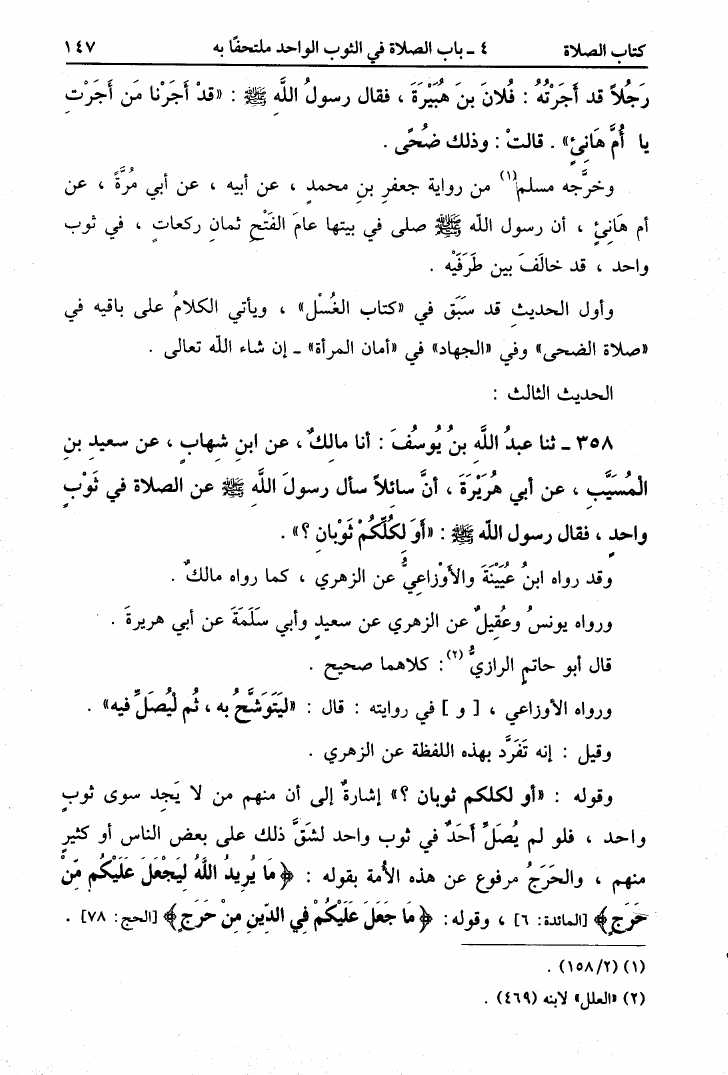 كتاب الصلاة ٤ ـ باب الصلاة في الثوب الواحد ملتحفًا به ١٤٧
رَجُلاً قد أَجَرْتُهُ : فُلانَ بنَ هُبَيْرَةَ ، فقال رسولُ اللَّهِ ﷺ : «قدْ أَجَرْنا مَن أَجَرْتِ
يا أُمَّ هَانِئٍ» . قالتْ : وذلك ضُحًى .
وخرَّجه مسلم(١) من رواية جعفرِ بنِ محمدٍ ، عن أبيه ، عن أبي مُرَّةَ ، عن
أم هَانِئٍ ، أن رسول الله ﷺ صلى في بيتها عامَ الفَتْحِ ثمانِ ركعاتٍ ، في ثوب
واحد ، قد خالَفَ بين طَرَفَيْه .
وأول الحديثِ قد سَبَق في «كتاب الغُسْل» ، ويأتي الكلامُ على باقيه في
«صلاة الضحى» وفي «الجهاد» في «أمان المرأة» ـ إن شاء الله تعالى .
الحديث الثالث :
٣٥٨ ـ ثنا عبدُ اللَّه بنُ يُوسُفَ : أنا مالكٌ، عن ابنِ شهابٍ ، عن سعيدِ بنِ
المُسَيَّبِ ، عن أبي هُرَيْرَةَ ، أنَّ سائلاً سأل رسولَ اللَّهِ ﷺ عن الصلاة في ثَوْبٍ
واحدٍ ، فقال رسول الله ﷺ : «أَوَ لكُلِّكُمْ ثَوْبان ؟» .
وقد رواه ابنُ عُيَيْنَةَ والأَوْزاعيُّ عن الزهري ، كما رواه مالكٌ .
ورواه يونسُ وعُقيلٌ عن الزهري عن سعيدٍ وأبي سَلَمَةَ عن أبي هريرةَ .
قال أبو حاتمٍ الرازيُّ(٢): كلاهما صحيح .
ورواه الأوزاعي ، [ و ] في روايته : قال : «ليَتَوشَّحْ به ، ثُم لْيُصَلِّ فيه» .
وقيل : إنه تَفَرَّدَ بهذه اللفظة عن الزهري .
وقوله : «أو لكلكم ثوبان ؟» إشارةٌ إلى أن منهم من لا يَجد سوى ثوبٍ
واحد ، فلو لم يُصَلِّ أَحَدٌ في ثوب واحد لشَقَّ ذلك على بعض الناس أو كثيرٍ
منهم ، والحَرَجُ مرفوع عن هذه الأمة بقوله : ﴿ مَا يُرِيدُ اللَّهُ لِيَجْعَلَ عَلَيْكُم مِّنْ
حَرَجٍ﴾ [المائدة: ٦] ، وقوله: ﴿ مَا جَعَلَ عَلَيْكُمْ فِي الدِّينِ مِنْ حَرَجٍ﴾ [الحج: ٧٨] .
(١) (١٥٨/٢) .
(٢) «العلل» لابنه (٤٦٩) .